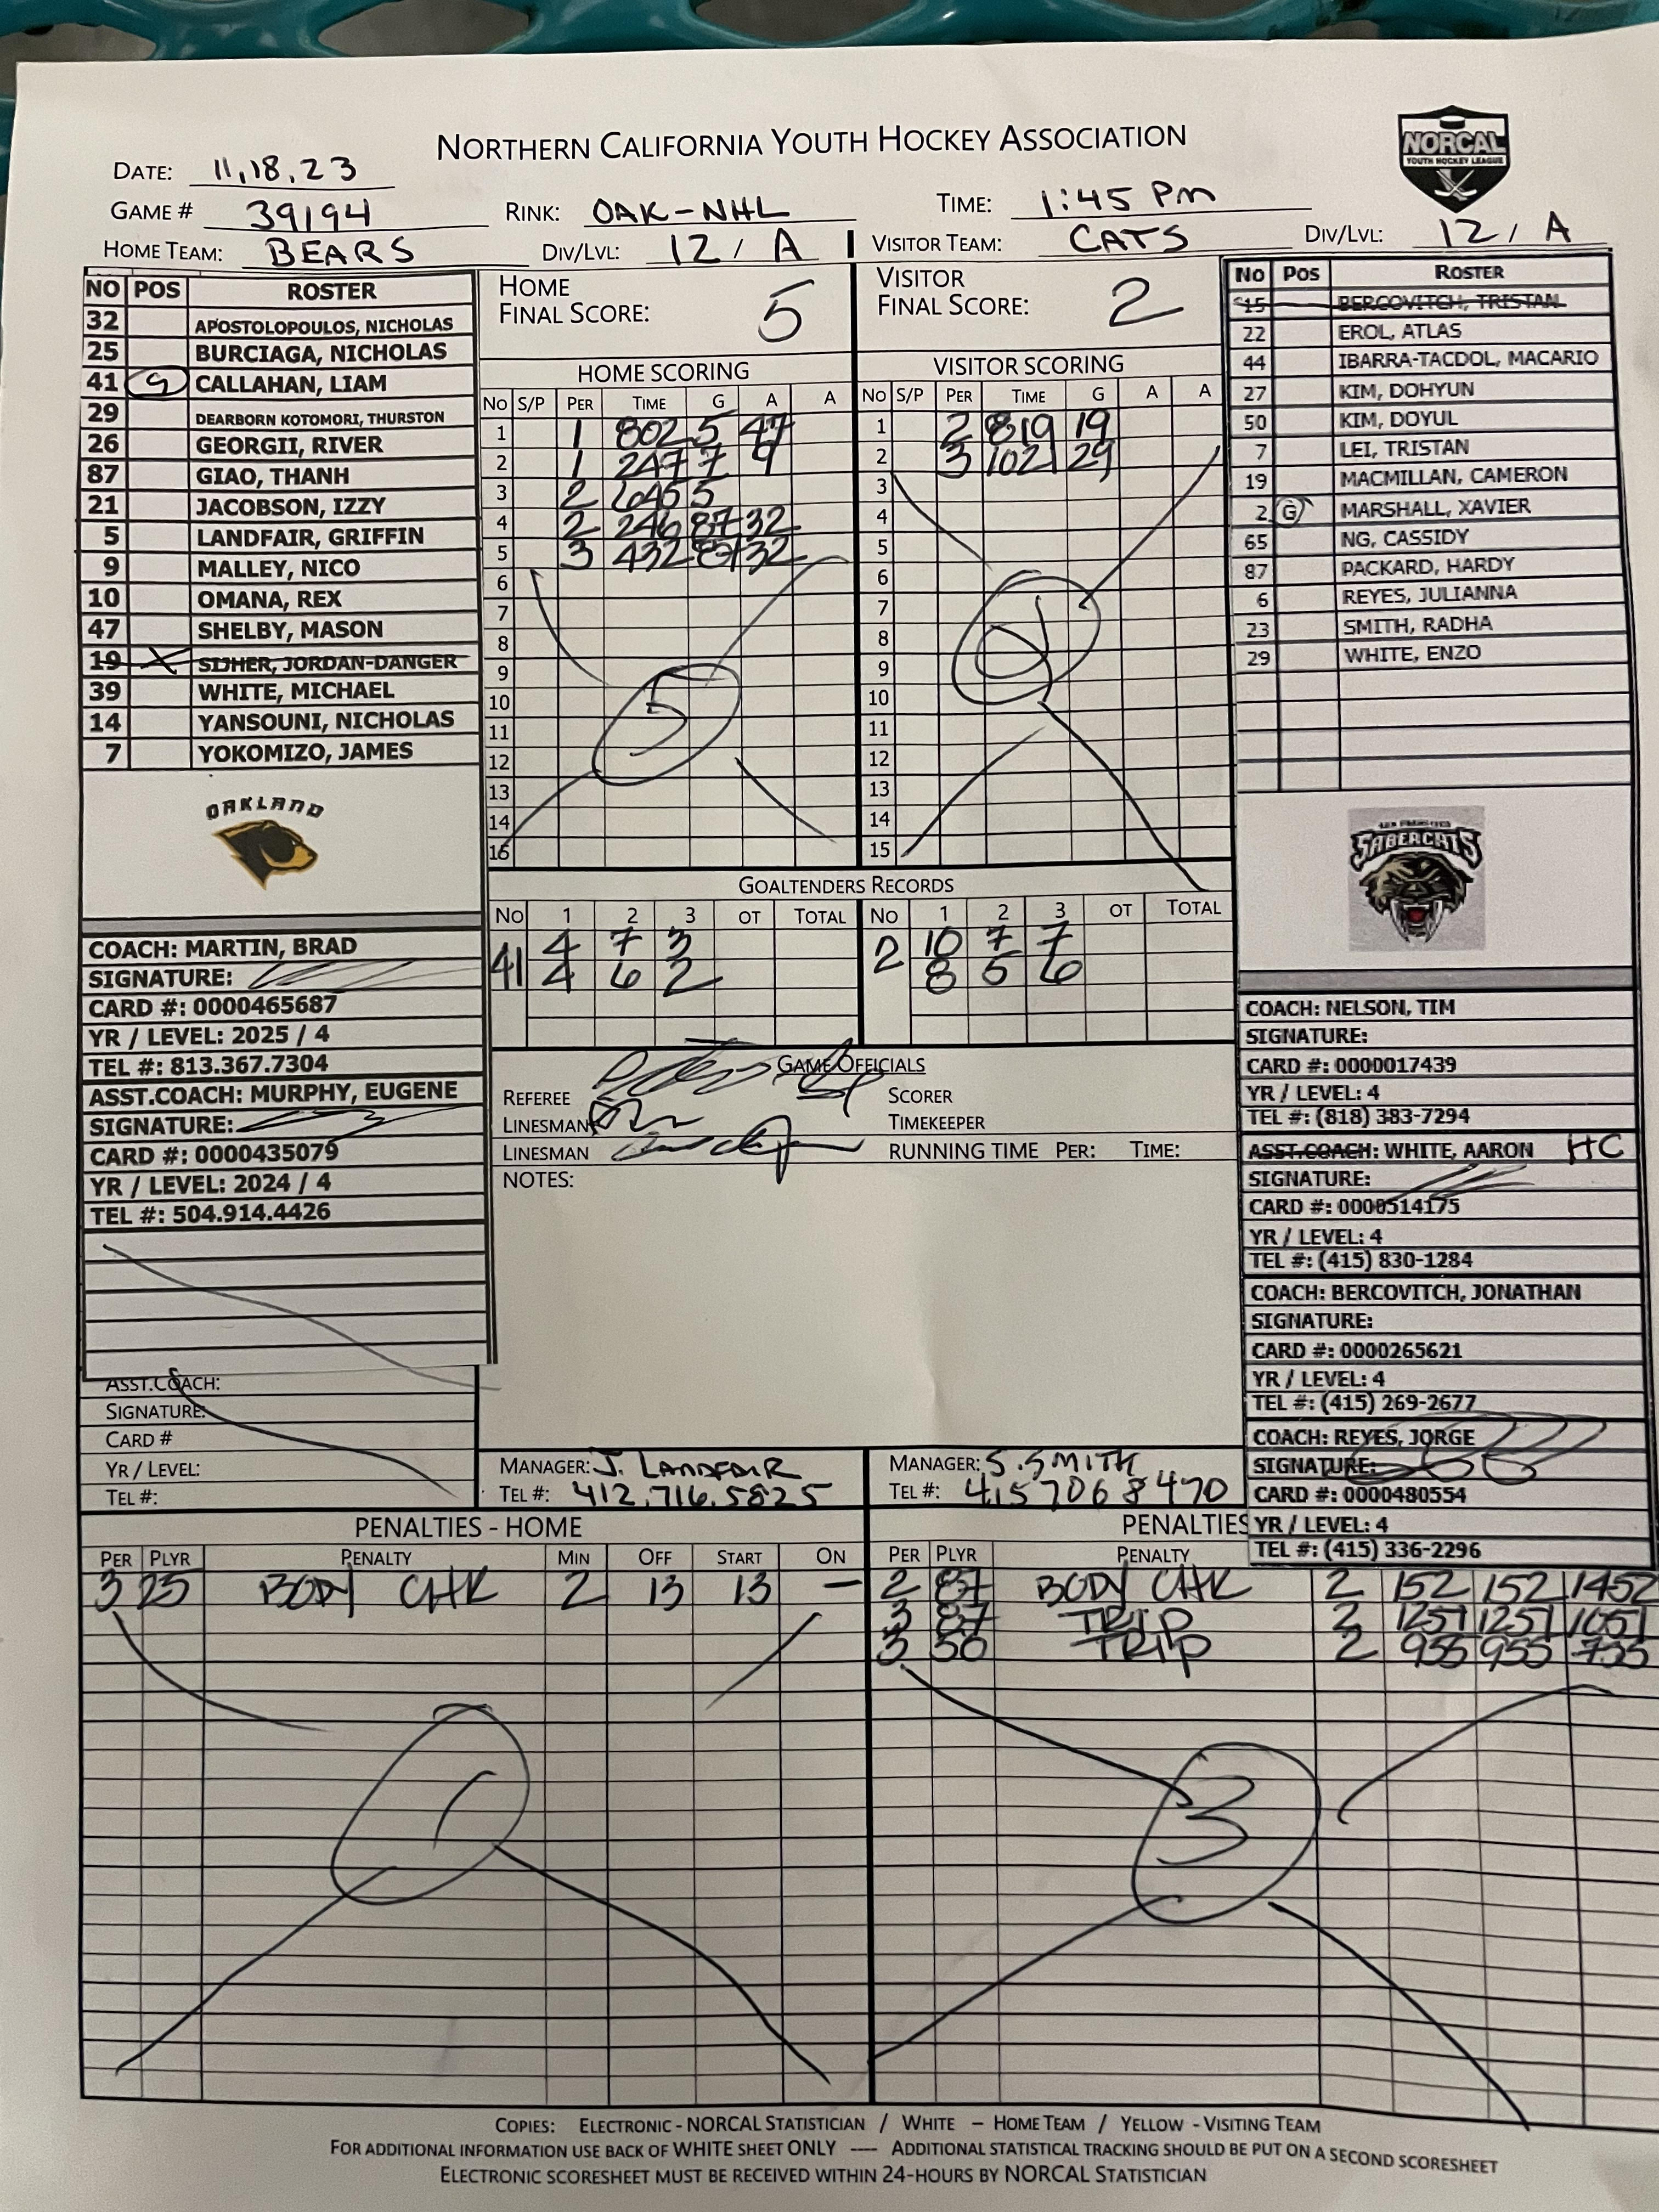 NORTHERN CALIFORNIA YOUTH HOCKEY ASSOCIATION
NORCAL
YOUTH HOCKEY LEAGUE
DATE: 11,18,23
GAME # 39194 RINK: OAK-NHL TIME: 1:45 PM
HOME TEAM: BEARS DIV/LVL: 12 / A VISITOR TEAM: CATS DIV/LVL: 12 / A
NO POS ROSTER
32 APOSTOLOPOULOS, NICHOLAS
25 BURCIAGA, NICHOLAS
41 G CALLAHAN, LIAM
29 DEARBORN KOTOMORI, THURSTON
26 GEORGII, RIVER
87 GIAO, THANH
21 JACOBSON, IZZY
5 LANDFAIR, GRIFFIN
9 MALLEY, NICO
10 OMANA, REX
47 SHELBY, MASON
19 X SIJHER, JORDAN-DANGER
39 WHITE, MICHAEL
14 YANSOUNI, NICHOLAS
7 YOKOMIZO, JAMES
OAKLAND
COACH: MARTIN, BRAD
SIGNATURE:
CARD #: 0000465687
YR / LEVEL: 2025 / 4
TEL #: 813.367.7304
ASST.COACH: MURPHY, EUGENE
SIGNATURE:
CARD #: 0000435079
YR / LEVEL: 2024 / 4
TEL #: 504.914.4426
ASST.COACH:
SIGNATURE:
CARD #
YR / LEVEL:
TEL #:
HOME
FINAL SCORE: 5
HOME SCORING
NO S/P PER TIME G A A
1 1 802 5 47
2 1 247 7 9
3 2 645 5
4 2 246 87 32
5 3 432 87 32
6
7
8
9
10
11
12
13
14
16
5
VISITOR
FINAL SCORE: 2
VISITOR SCORING
NO S/P PER TIME G A A
1 2 819 19
2 3 1021 29
3
4
5
6
7
8
9
10
11
12
13
14
15
GOALTENDERS RECORDS
NO 1 2 3 OT TOTAL NO 1 2 3 OT TOTAL
41 4 7 3 2 10 7 7
4 6 2 8 5 6
GAME OFFICIALS
REFEREE SCORER
LINESMAN TIMEKEEPER
LINESMAN RUNNING TIME PER: TIME:
NOTES:
MANAGER: J. LANDFAIR MANAGER: S. SMITH
TEL #: 412.716.5825 TEL #: 415 706 8470
NO POS ROSTER
15 BERCOVITCH, TRISTAN
22 EROL, ATLAS
44 IBARRA-TACDOL, MACARIO
27 KIM, DOHYUN
50 KIM, DOYUL
7 LEI, TRISTAN
19 MACMILLAN, CAMERON
2 G MARSHALL, XAVIER
65 NG, CASSIDY
87 PACKARD, HARDY
6 REYES, JULIANNA
23 SMITH, RADHA
29 WHITE, ENZO
SAN FRANCISCO
SABERCATS
COACH: NELSON, TIM
SIGNATURE:
CARD #: 0000017439
YR / LEVEL: 4
TEL #: (818) 383-7294
ASST.COACH: WHITE, AARON HC
SIGNATURE:
CARD #: 0000514175
YR / LEVEL: 4
TEL #: (415) 830-1284
COACH: BERCOVITCH, JONATHAN
SIGNATURE:
CARD #: 0000265621
YR / LEVEL: 4
TEL #: (415) 269-2677
COACH: REYES, JORGE
SIGNATURE:
CARD #: 0000480554
YR / LEVEL: 4
TEL #: (415) 336-2296
PENALTIES - HOME
PER PLYR PENALTY MIN OFF START ON
3 25 BODY CHK 2 13 13 —
1
PENALTIES
PER PLYR PENALTY
2 87 BODY CHK 2 152 152 1452
3 87 TRIP 2 1251 1251 1051
3 50 TRIP 2 955 955 755
3
COPIES: ELECTRONIC - NORCAL STATISTICIAN / WHITE – HOME TEAM / YELLOW - VISITING TEAM
FOR ADDITIONAL INFORMATION USE BACK OF WHITE SHEET ONLY ---- ADDITIONAL STATISTICAL TRACKING SHOULD BE PUT ON A SECOND SCORESHEET
ELECTRONIC SCORESHEET MUST BE RECEIVED WITHIN 24-HOURS BY NORCAL STATISTICIAN